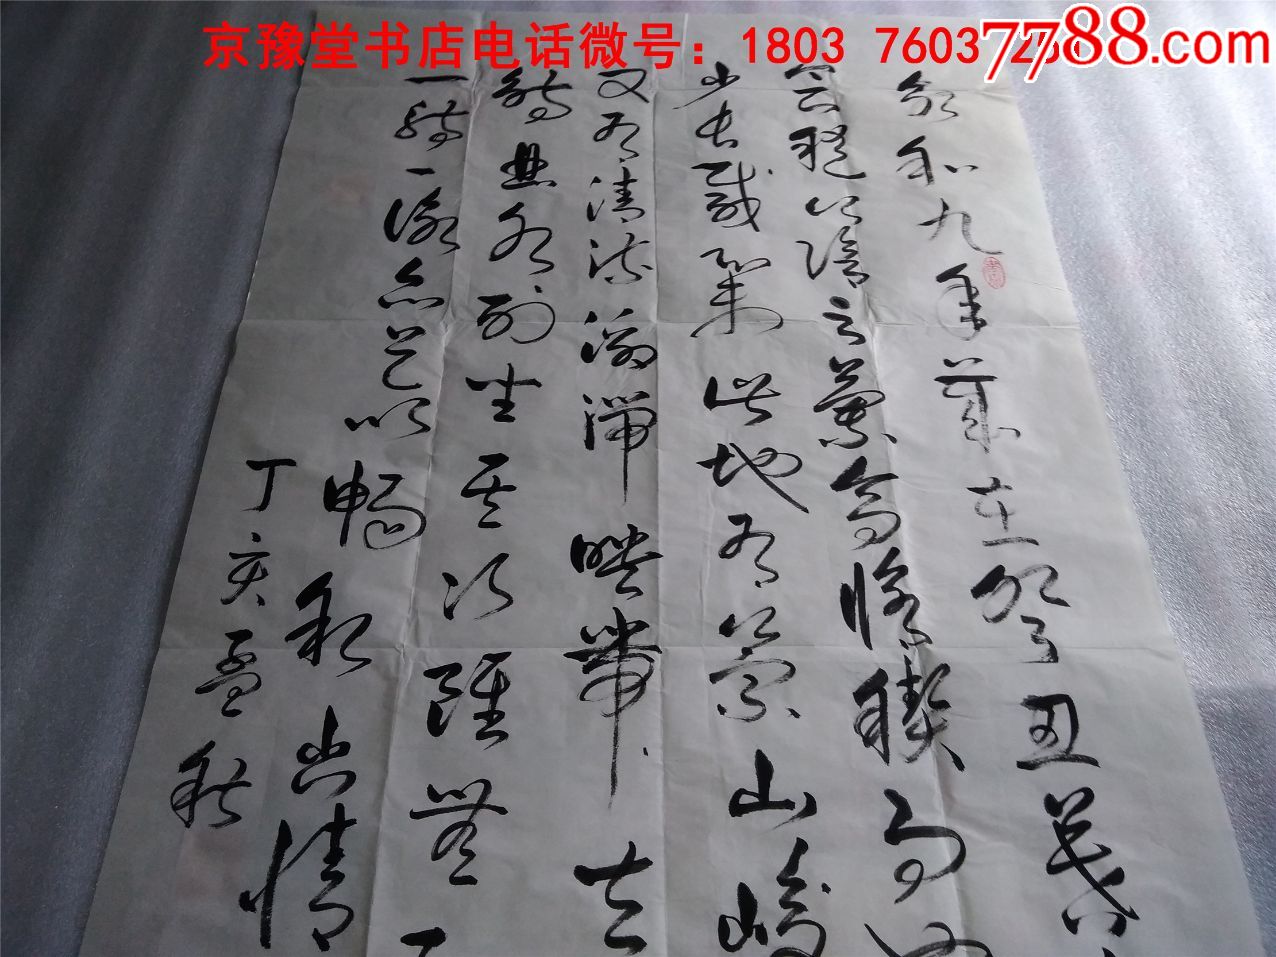 京豫堂书店电话微号：1803 7603
7788.com
永和九年岁在癸丑暮
会稽山阴之兰亭修禊事
少长咸集此地有崇山峻
又有清流激湍映带左
觞曲水列坐其次虽无
一觞一咏亦足以畅叙幽情
丁亥孟秋